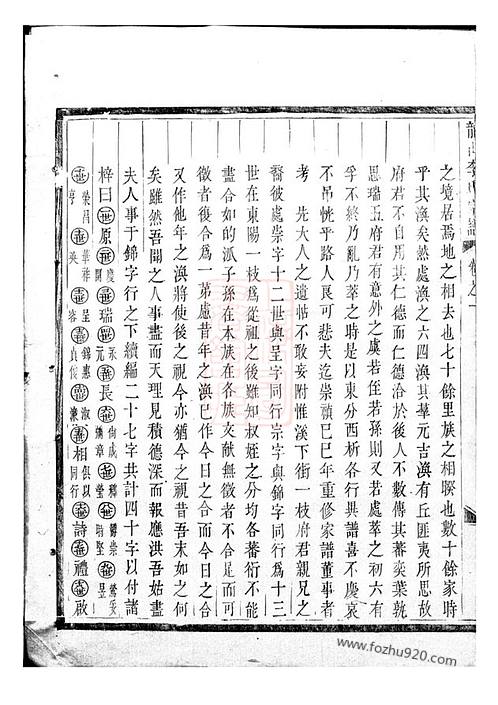 之境若焉地之相去也七十餘里族之相睽也數十餘家時
乎其渙矣然處渙之六四渙其羣元吉渙有丘匪夷所思故
府君不自用其仁德而仁德洽於後人不數傳其蕃奕葉孰
思瑞五府君有意外之虞若侄若孫則又若處萃之初六有
孚不終乃亂乃萃之時是以東分西析各行輿譜喜不慶哀
不弔恍乎路人良可悲夫迄崇禎巳巳年重修家譜董事者
考先大人之遺帖不敢妄附惟溪下街一枝府君親兄之
裔彼處崇字十二世與呈字同行宗字與錦字同行爲十三
世在東陽一枝爲從祖之後雖知叔姪之分均各蕃衍不能
盡合如的派子孫在本族在各族文献無徵者不合是而可
徵者後合爲一第慮昔年之渙巳作今日之合而今日之合
又作他年之渙將使後之視今亦猶今之視昔吾末如之何
矣雖然吾聞之人事盡而天理見積德深而報應洪吾姑盡
夫人事于錦字行之下續編二十七字共計四十字以付諸
梓曰 世原 慶開 世瑞 永元 世長
榮昌亨 華祥 呈錦惠 淑 相 俱以同行 詩 禮 啟
www.fozhu920.com